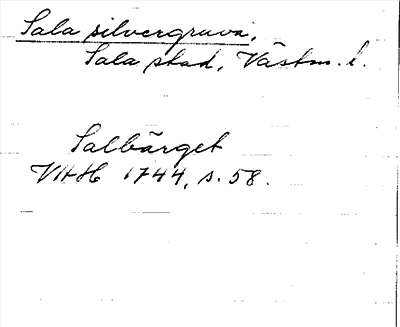 Sala silvergruva,
Sala stad, Västm. l.
Salbärget
VAH 1744, s. 58.